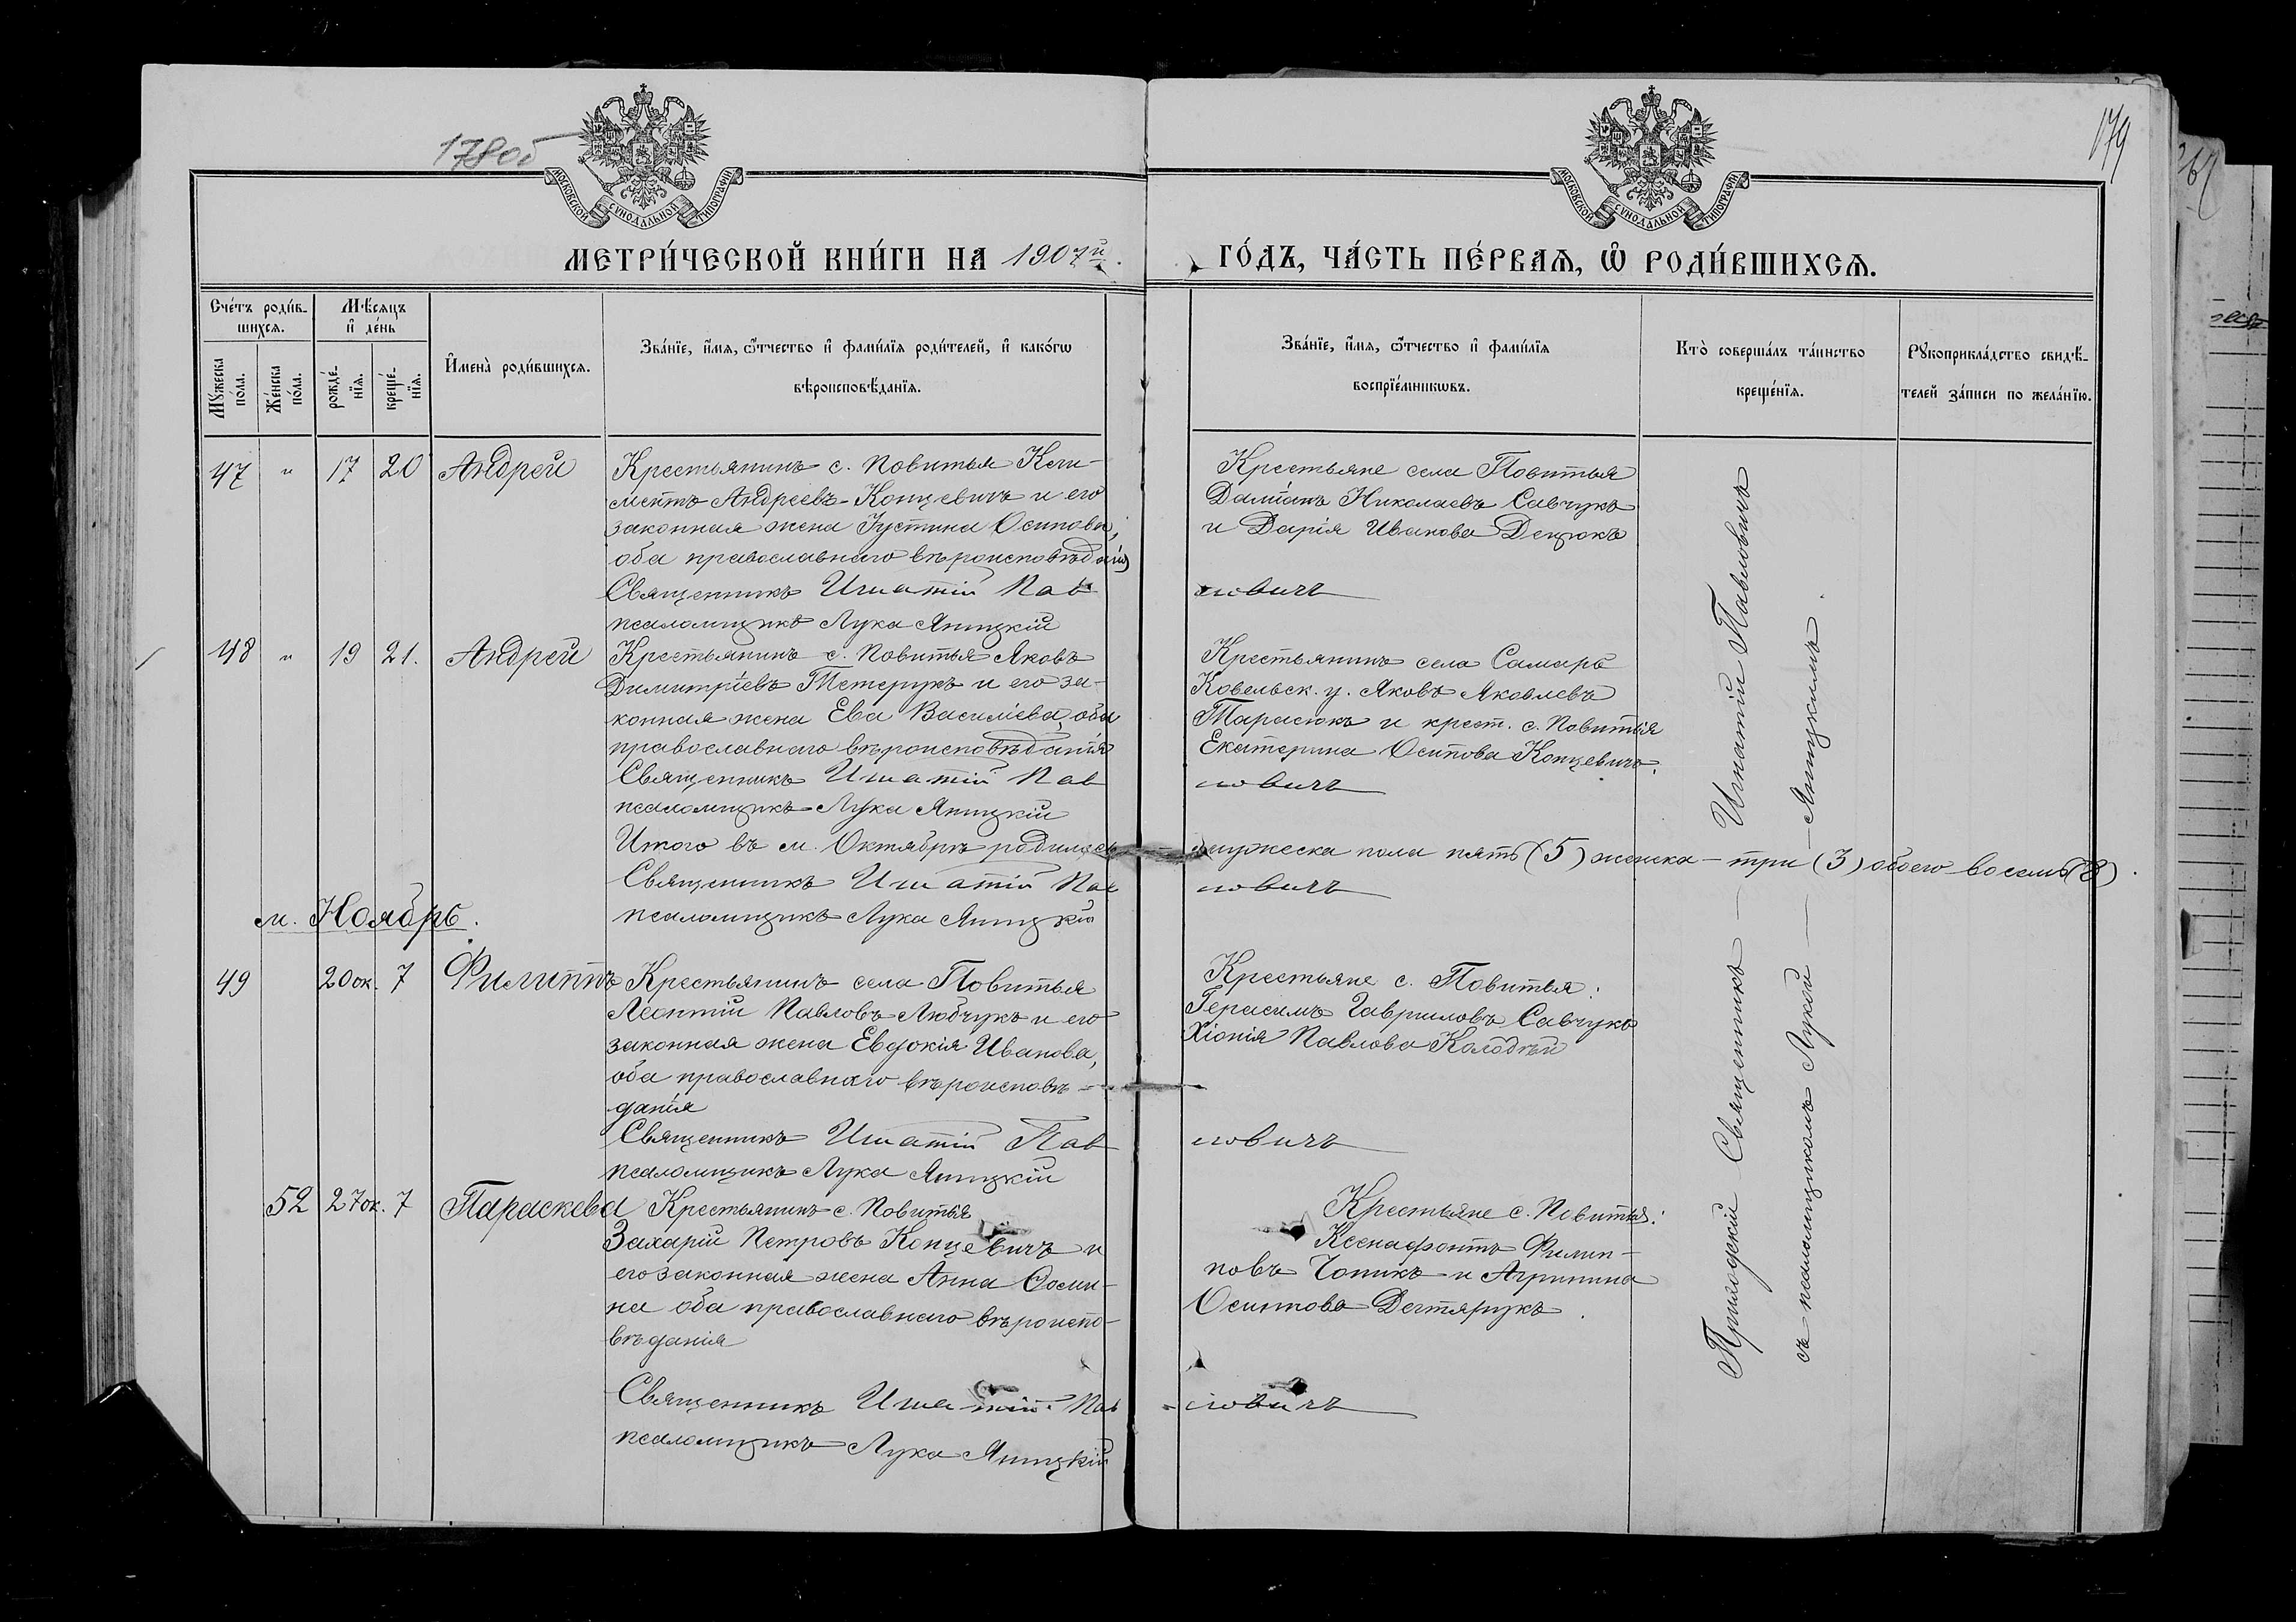 178об
179
МОСКОВСКОЙ СѴНОДАЛЬНОЙ ТИПОГРАФІИ
МОСКОВСКОЙ СѴНОДАЛЬНОЙ ТИПОГРАФІИ
МЕТРИ́ЧЕСКОЙ КНИ́ГИ НА 1907й.
ГО́ДЪ, ЧА́СТЬ ПЕ́РВАЯ, Ѡ҆ РОДИ́ВШИХСѦ.
Сче́тъ роди́в-
шихсѧ.
Мѣ́сѧцъ
и҆ де́нь
Мꙋ́жеска
по́ла.
Же́нска
по́ла.
рожде́-
нїѧ.
креще́-
нїѧ.
И҆мена̀ роди́вшихсѧ.
Зва́нїе, и҆́мѧ, ѻ҆́тчество и҆ фами́лїѧ роди́телей, и҆ како́гѡ
вѣроисповѣ́данїѧ.
Зва́нїе, и҆́мѧ, ѻ҆́тчество и҆ фами́лїѧ
воспрїе́мникѡвъ.
Кто̀ соверша́лъ та́инство
креще́нїѧ.
Рꙋкоприкла́дство свидѣ́-
телей за́писи по жела́нїю.
47 " 17 20 Андрей
Крестьянинъ с. Повитья Кли-
ментъ Андреевъ Концевичъ и его
законная жена Іустина Осипова,
оба православнаго вѣроисповѣданія
Священникъ Игнатій Пав
ловичъ
псаломщикъ Лука
Крестьяне села Повитья
Даміанъ Николаевъ Савчукъ
и Дарія Иванова Децюкъ
48 " 19 21. Андрей
Крестьянинъ с. Повитья Яковъ
Димитріевъ Тетерукъ и его за-
конная жена Ева Василіева, оба
православнаго вѣроисповѣданія
Священникъ Игнатій Пав
ловичъ
псаломщикъ Лука
Крестьянинъ села Самаръ
Ковельск. у. Яковъ Яковлевъ
Тарасюкъ и крест. с. Повитья
Екатерина Осипова Концевичъ.
Итого въ м. Октябрѣ родилось
мужеска пола пять (5) женска – три (3) обоего восемь (8).
Священникъ Игнатій Пав
ловичъ
псаломщикъ Лука
м. Ноябрь.
49 20 ок. 7 Филиппъ
Крестьянинъ села Повитья
Леонтій Павловъ Любчукъ и его
законная жена Евдокія Иванова,
оба православнаго вѣроисповѣ-
данія
Священникъ Игнатій Пав
ловичъ
псаломщикъ Лука
Крестьяне с. Повитья:
Герасимъ Гавриловъ Савчукъ
Хіонія Павлова Колодѣй
52 27 ок. 7 Параскева
Крестьянинъ с. Повитья
Захарій Петровъ Концевичъ и
его законная жена Анна Ѳоми-
на оба православнаго вѣроиспо-
вѣданія
Священникъ Игнатій Пав
ловичъ
псаломщикъ Лука
Крестьяне с. Повитья:
Ксенафонтъ Филип-
повъ Чопикъ и Агрипина
Осипова Дегтярукъ.
Приходскій Священникъ – Игнатій Павловичъ
съ псаломщикомъ Лукой –